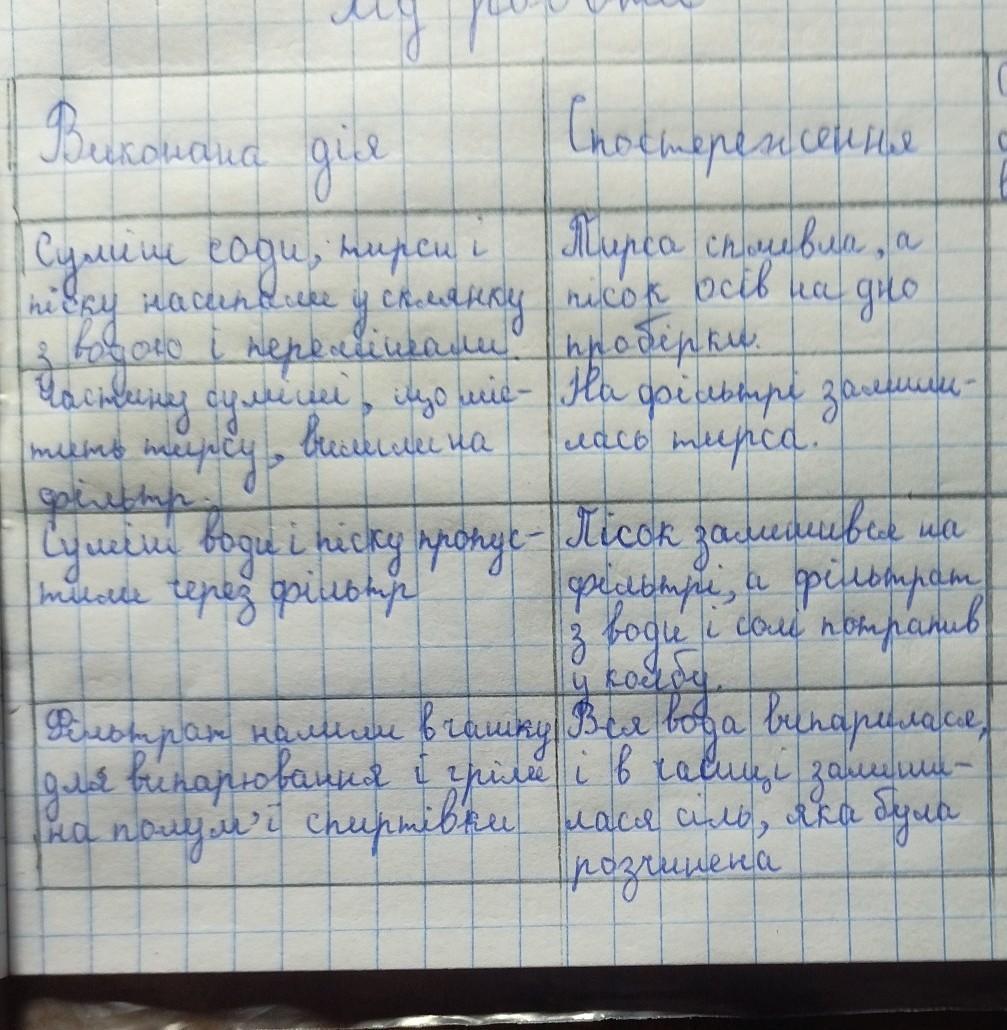 Хід роботи
Виконана дія
Спостереження
Суміш соди, тирси і
піску насипали у склянку
з водою і перемішали.
Тирса спливла, а
пісок осів на дно
пробірки.
Частину суміші, що міс-
тить тирсу, вилили на
фільтр.
На фільтрі залиши-
лась тирса.
Суміш води і піску пропус-
тили через фільтр
Пісок залишився на
фільтрі, а фільтрат
з води і солі потрапив
у колбу.
Фільтрат налили в чашку
для випарювання і гріли
на полум'ї спиртівки
Вся вода випарилася,
і в чашці залиши-
лася сіль, яка була
розчинена